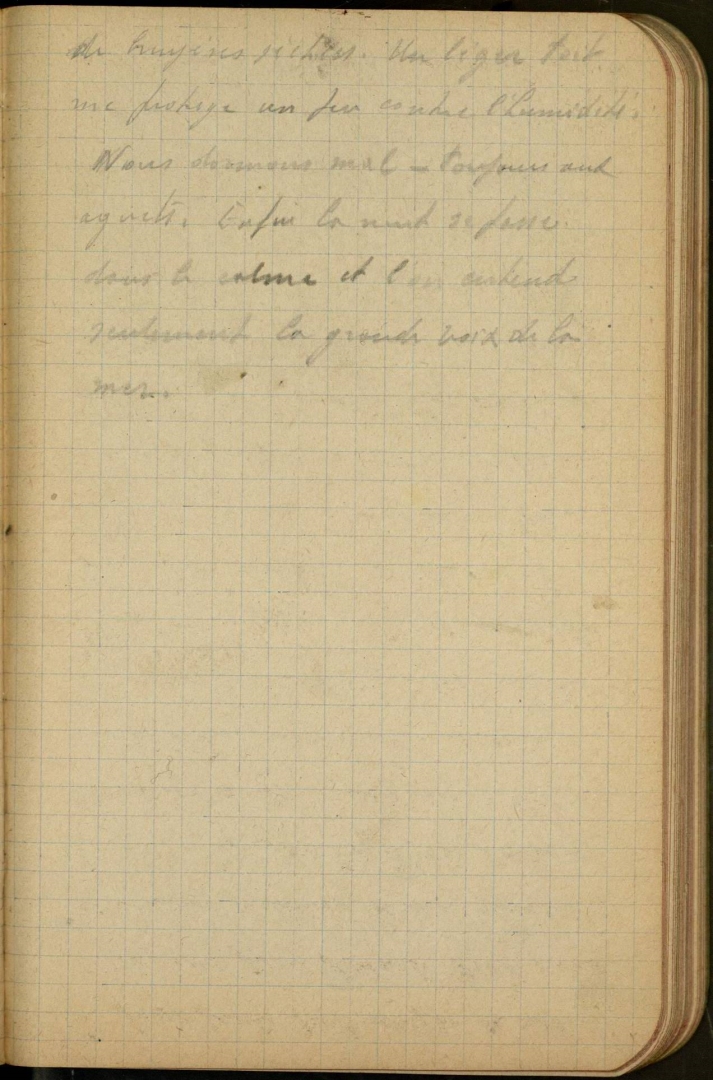 de bruyères sèches. Un léger toit
me protège un peu contre l'humidité.
Nous dormons mal - toujours aux
aguets. Enfin la nuit se passe
dans le calme et l'on entend
seulement la grande voix de la
mer.